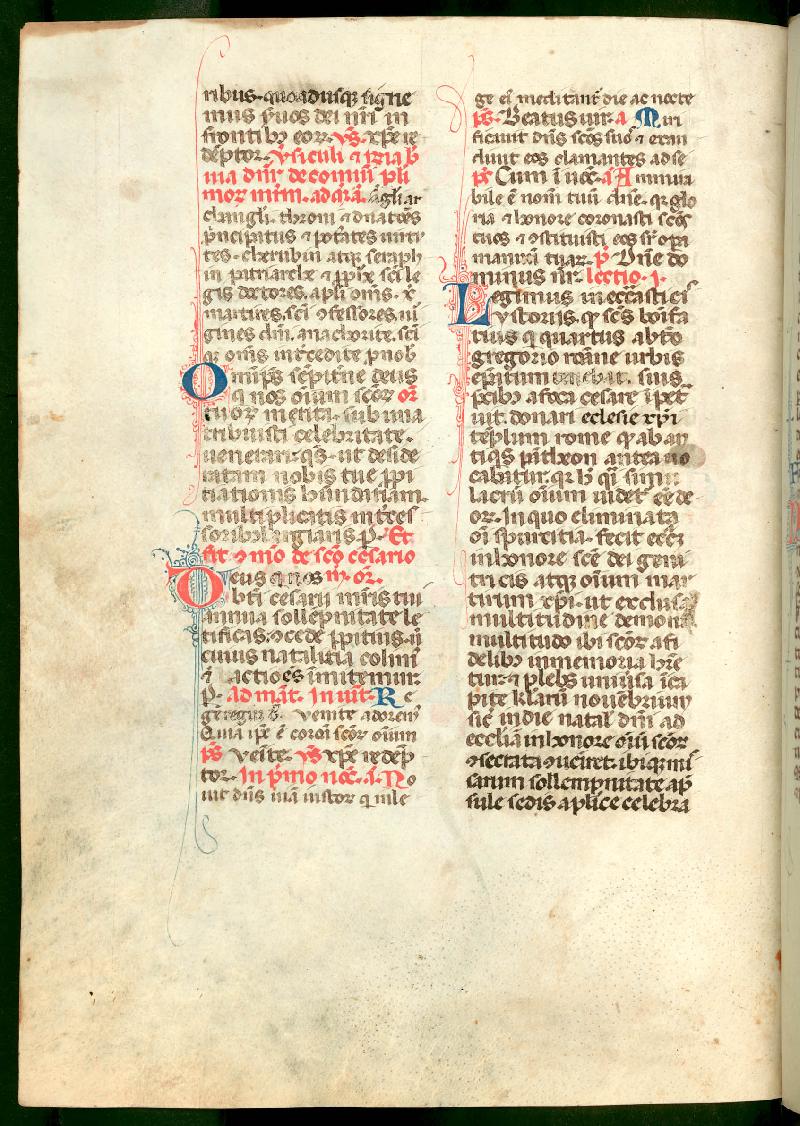 ribus quoadusq; signe
mus suos dei nr̄i in
frontibȝ eoꝝ. vs. xp̄e re
dēptor. ysiculi ⁊
ma dn̄r de comūi pli
moꝝ mr̄m. ad
changl̓i. throni ⁊ dn̄atōēs
p̄ncipatus ⁊ potates uirtu
tes. cherubin atq; seraph
in patriarche ⁊ ꝓph̄e sc̄i le
gis doctores. apl̓i om̄s. x
martires. sc̄i ꝯfessores. ui
gines dn̄i. anachorite. sc̄i
qꝫ om̄s intercedite ꝓ nob̄
Omīps sēpit̄ne deus
q̓ nos oīum scōꝝ or̄
tuoꝝ merita. sub una
tribuisti celebritate.
uenerari. qs̄. ut deside
ratam nobis tue ꝓpi
tiationis habundātiam.
multiplicatis int̓ces
soribȝ largiaris. ꝑ. Et
fit ꝯmō de scō cesario
Deus q̓ nos m̄. or̄.
bt̄i cesarii mr̄is tui
annua sollepnitate le
tificas. ꝯcede ꝓpitius. ū
cuius natalitia colim̄
⁊ actiōēs imitemur
ꝑ. ad mat̄. Inuit̄. Re
gē regum venite adorem̄
Quia ip̄e ē corōa scōꝝ oīum
ps̄ venite. vs xp̄e redēp
tor. In p̓mo noc̄. a. No
uit dn̄s uiā iustoꝝ q̓ in le
ge ei meditant̄ die ac nocte
ps̄. Beatus uir. a. Miri
ficauit dn̄s scōs suos ⁊ exau
diuit eos clamantes ad se
ps̄ Cum ī uoc̄. a. Ammira
bile ē nom̄ tuū dn̄e. qꝫ glo
ria ⁊ honore coronasti scōs
tuos ⁊ ꝯstituisti eos sr̄ opa
manuū tuaꝝ. ps̄ Dn̄e do
minus nr̄. lectio. i.
Legimus in eccl̓iasticī
ystoriis. qꝫ sc̄s bonifa
tius q̓ quartus a btō
gregorio romane urbis
ep̄atum tenebat. suis
p̄cibȝ a foca cesare īpet
uit. donari eclesie xp̄i
tēplum rome qꝫ ab an
tiqs pātheon antea uo
cabat̄ur. qꝫ h̄ q̄i simu
lacrū oīum uidet̓ eē de
oꝝ. In quo eliminata
oī spurcitia. fecit ecc̄i
in honore scē dei geni
tricis atq; oīum mar
tirum xp̄i. ut exclusa
multitudine demonū
multitudo ibi scōꝝ a fi
delibȝ in memoria hr̄e
tur. ⁊ plebs uniuersa ī ca
pite klarū nouēbrium
sic in die natal̓ dn̄i ad
eccl̓iā in honore oīū scōꝝ
ꝯsectata ꝯueniret. ibiq; mi
saꝝum sollempnitate a p̄
sule sedis aplice celebra